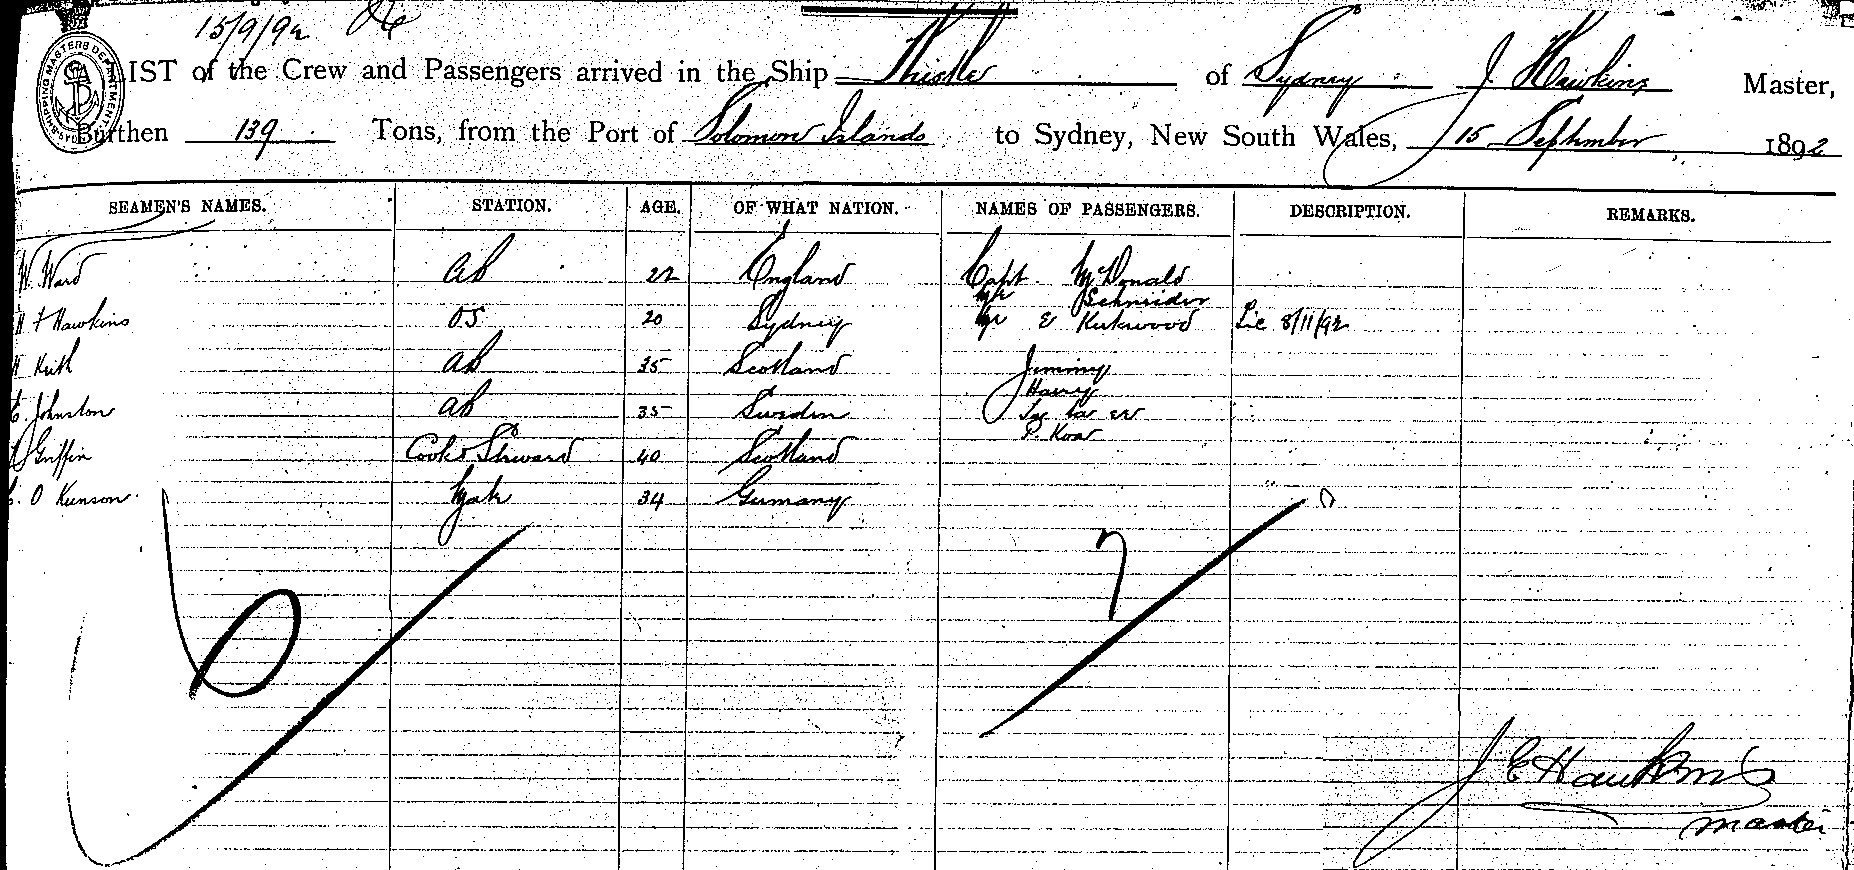 15/9/92
SHIPPING MASTERS DEPARTMENT SYDNEY
LIST of the Crew and Passengers arrived in the Ship Thistle of Sydney J. Hawkins Master,
Burthen 139 Tons, from the Port of Solomon Islands to Sydney, New South Wales, 15 September 1892
SEAMEN'S NAMES. STATION. AGE. OF WHAT NATION. NAMES OF PASSENGERS. DESCRIPTION. REMARKS.
W. Ward ab 22 England Capt McDonald
Mr Schneider
H F Hawkins OS 20 Sydney Mr E Kirkwood Lic 8/11/92
Keith ab 35 Scotland Jimmy
Harry
Johnston ab 35 Sweden
Griffin Cook & Steward 40 Scotland
O Kunson Mate 34 Germany
7
6
J E Hawkins
master